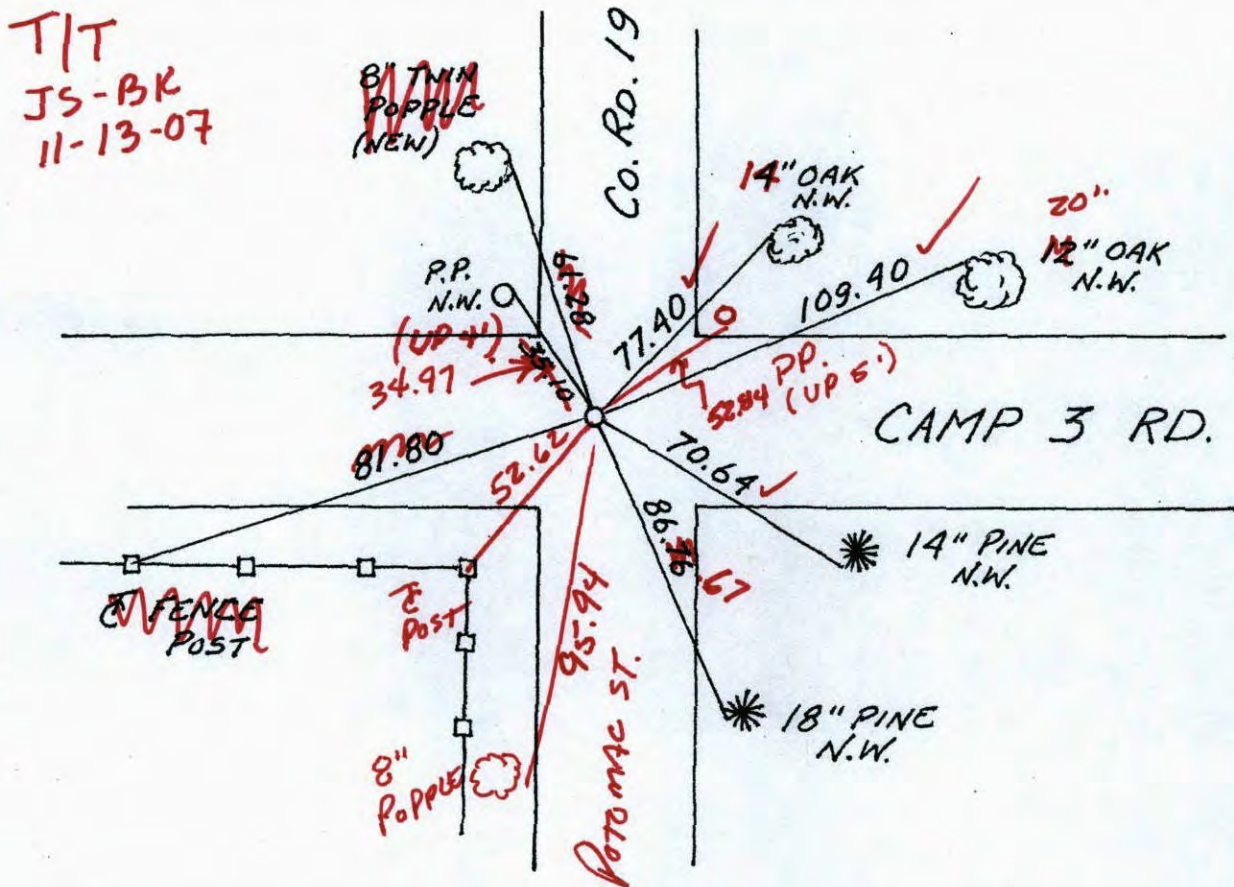 T/T
JS-BK
11-13-07
8" TWIN
POPPLE
(NEW)
CO. RD. 19
14" OAK
N.W.
20"
12" OAK
N.W.
P.P.
N.W.
(UP 4')
34.97
35.10
82.19
77.40
109.40
52.84 PP.
(UP 5')
CAMP 3 RD.
81.80
52.62
70.64
86.76
.67
14" PINE
N.W.
℄ FENCE
POST
℄
POST
95.94
POTOMAC ST.
18" PINE
N.W.
8"
POPPLE